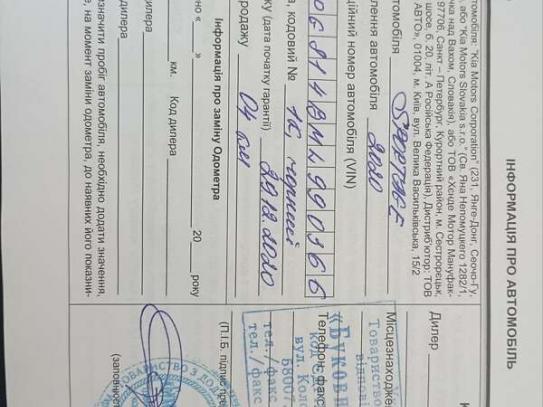 ІНФОРМАЦІЯ ПРО АВТОМОБІЛЬ
томобіля: "Kia Motors Corporation" (231, Янге-Донг, Сеочо-Гу,
або "Kia Motors Slovakia s.r.o." (Св. Яна Непомуцкего 1282/1,
над Вахом, Словакія), або ТОВ «Хенде Мотор Мануфак-
97706, Санкт – Петербург, Курортний район, м. Сестрорецьк,
шосе, б. 20, літ. А Російська Федерація), Дистриб'ютор: ТОВ
АВТО», 01004, м. Київ, вул. Велика Васильківська, 15/2
втомобіля SPORTAGE
лення автомобіля 2020
ційний номер автомобіля (VIN)
, кодовий № 1К, чорний
ку (дата початку гарантії) 29.12.2020
родажу 04 км
Інформація про заміну Одометра
но « » 20 року
км. Код дилера
дилера
значити пробіг автомобіля, необхідно додати значення,
е, на момент заміни одометра, до наявних його показни-
Дилер
Місцезнаходже
Товариство
«БУКОВ
Телефон, факс
вул. Кол
58007
тел./факс
тел./факс
(П.І.Б. підпис пре
(заповност